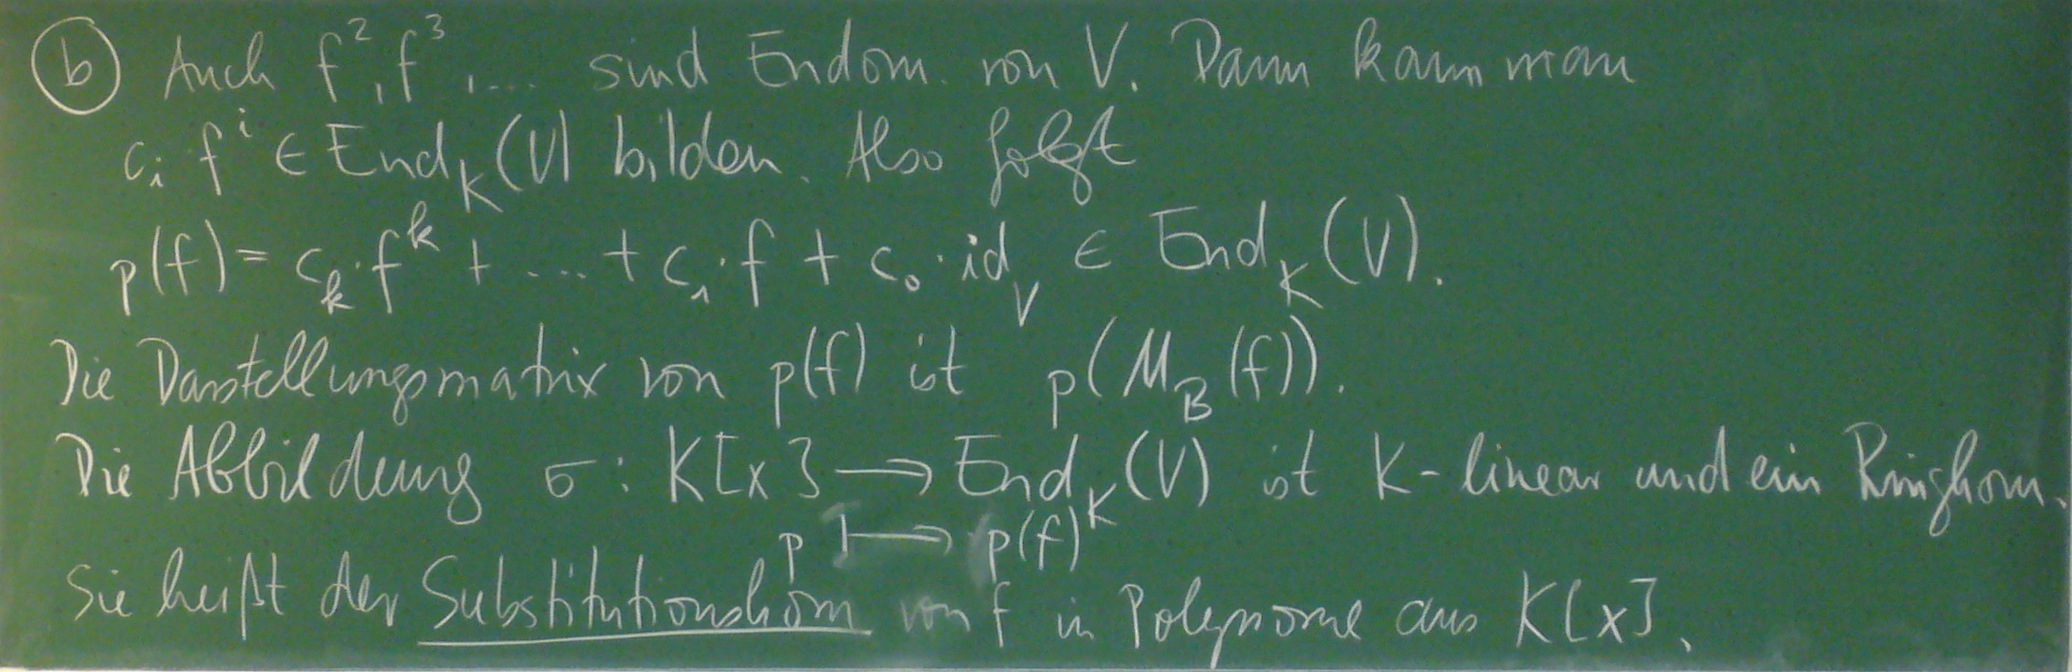 (b) Auch f², f³, .... sind Endom. von V. Dann kann man
cᵢ fⁱ ∈ End_K(V) bilden. Also folgt
p(f) = c_k · f^k + .... + c₁ · f + c₀ · id_V ∈ End_K(V).
Die Darstellungsmatrix von p(f) ist p(M_B(f)).
Die Abbildung σ : K[x] ⟶ End_K(V) ist K-linear und ein Ringhom.
p ⟼ p(f)
Sie heißt der Substitutionshom von f in Polynome aus K[x].